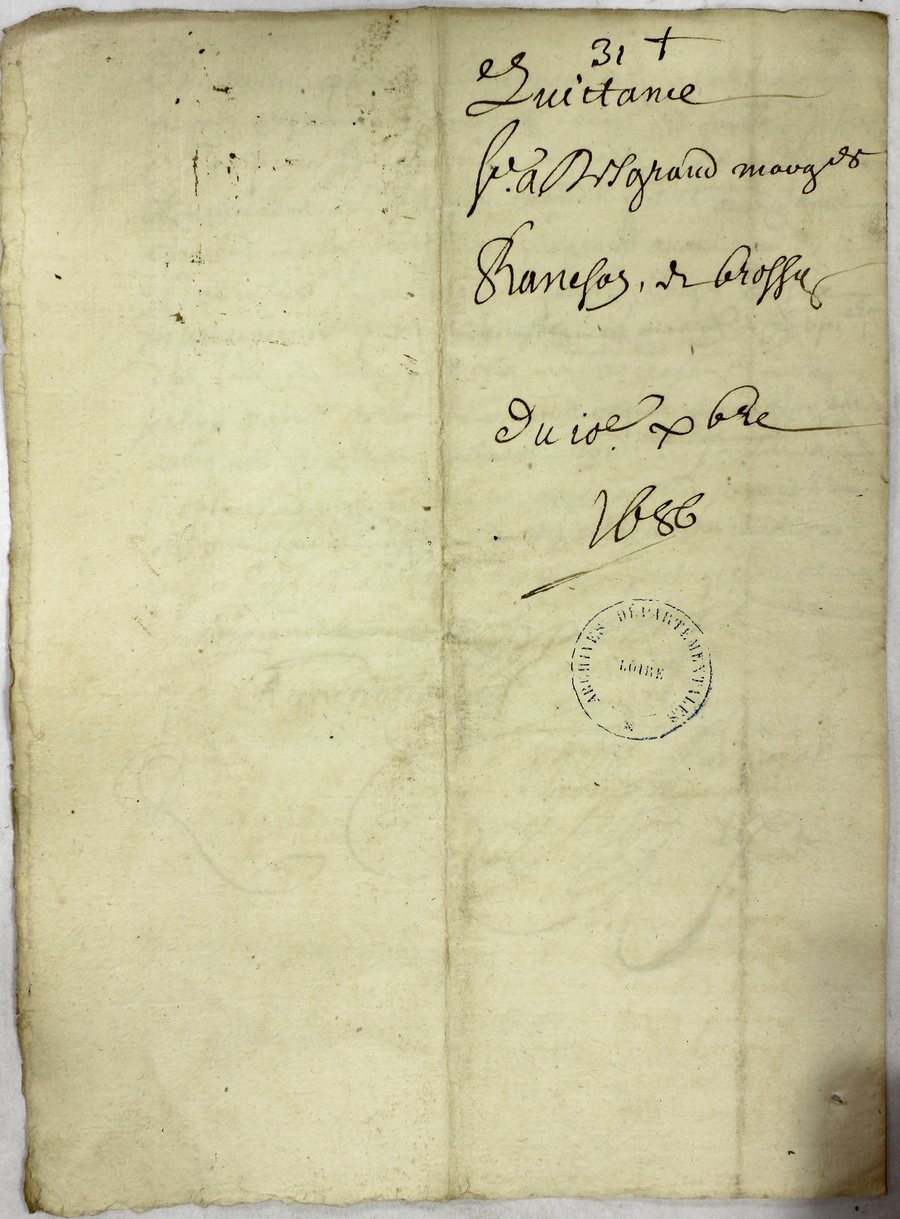 31 +
Quittance
fe. a Delgrand
de brosses
Du 10e. xbre
1686
ARCHIVES DÉPARTEMENTALES
LOIRE